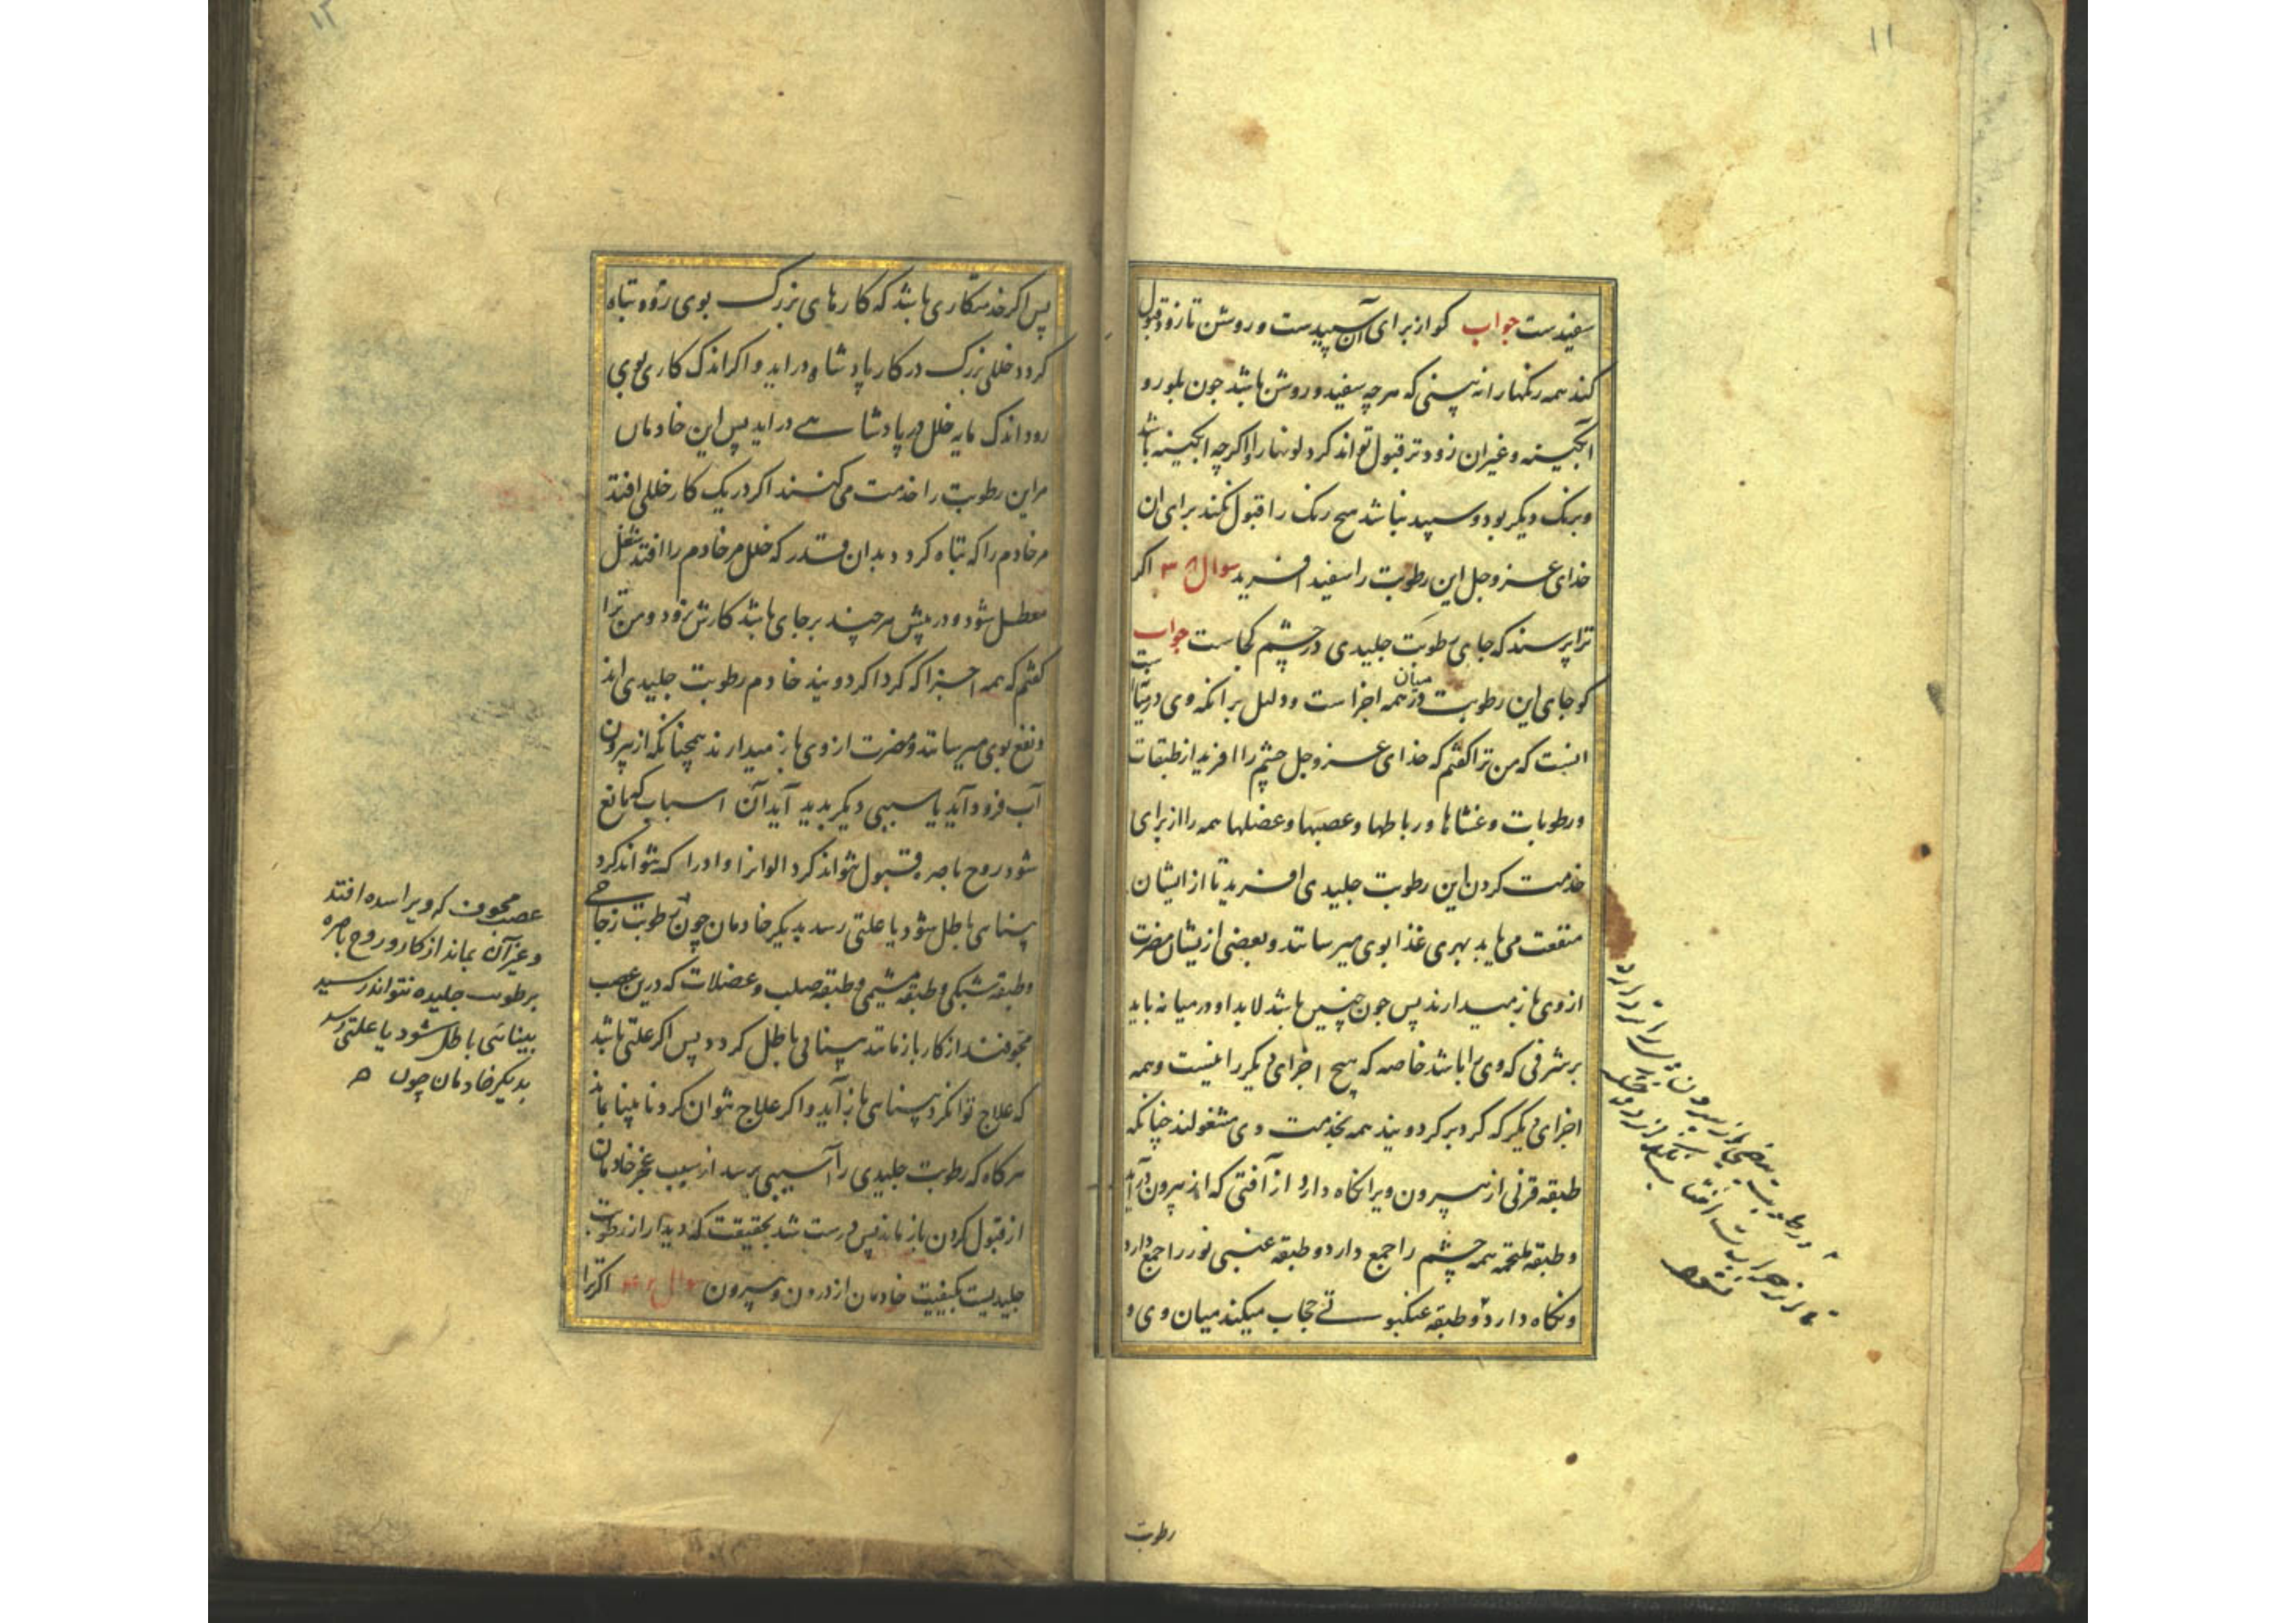 ۱۱
سفیدست جواب کو از برای آن سپیدست و روشن تا زود قبول
کند همه رنکها را نه بینی که هرچه سفید و روشن باشد جون بلور و
آبکینه و غیر آن زودتر قبول تواند کرد لونها را و اکرچه ابکینه باشد
و برنک دیکر بود و سپید نباشد هیح رنک را قبول نکند برای ان
خدای عز و جل این رطوبت را سفید افرید سوال اکر
ترا پرسند که جای رطوبت جلیدی در چشم کجاست جواب
کو جای این رطوبت در میان همه اجزا است و دلیل بر انکه وی در میان است
انست که من ترا کفتم که خدای عز و جل چشم را افرید از طبقات
و رطوبات و غشاها و رباطها و عصبها و عضلها همه را از برای
خدمت کردن این رطوبت جلیدی افرید تا از ایشان
منفعت می یابد بهری غذا بوی میرسانند و بعضی ازیشان مضرت
از وی باز میدارند پس جون چنین باشد لابد او در میانه باید
بر شرفی که وی را باشد خاصه که هیچ اجزای دیکر را نیست و همه
اجزای دیکر که کرد بر کرد ویند همه بخدمت وی مشغولند چنانکه
طبقه قرنی از بیرون ویرا نکاه دارد از آفتی که از بیرون در آید
و طبقه ملتحمه همه چشم را جمع دارد و طبقه عنبی نور را جمع دارد
و نکاه دارد و طبقه عنکبوتی حجاب میکند میان وی و
رطوبت
۱۲
پس اکر خدمتکاری باشد که کارهای بزرک بوی رود و تباه
کردد خللی بزرک در کار پادشاه در اید و اکر اندک کاری بوی
رود اندک مایه خلل در پادشاهی در اید پس این خادمان
مر این رطوبت را خدمت می کنند اکر در یک کار خللی افتد
مر خادم را که تباه کردد بدان قدر که خلل مر خادم را افتد شغل
معطل شود و درپیش هرچند بر جای باشد کارش نرود و من ترا
کفتم که همه اجزا که کرداکرد ویند خادم رطوبت جلیدی اند
و نفع بوی میرسانند و مضرت از وی باز میدارند همچنانکه از بیرون
آب فرود آید یا سببی دیکر بدید آید آن اسباب که مانع
شود روح باصره قبول نتواند کرد الوانرا و اورا که نتواند کرد
بینایی باطل شود یا علتی رسد بدیکر خادمان چون رطوبت زجاجی
و طبقه شبکی و طبقه مشیمی و طبقه صلب و عضلات که درین عصب
مجوفند از کار باز مانند بینائی باطل کردد پس اکر علتی باشد
که علاج توان کرد بینایی باز آید و اکر علاج نتوان کرد نابینا بماند
هرکاه که رطوبت جلیدی را آسیبی برسد از سبب عجز خادمان
از قبول کردن باز ماند پس درست شد بحقیقت که دیدار از رطوبت
جلیدیست بکیفیت خادمان از درون و بیرون سوال اکر ترا
عصب مجوف که ویرا سده افتد
و غیر آن بماند از کار و روح باصره
برطوبت جلیده نتواند رسید
بینائی باطل شود یا علتی رسد
بدیکر خادمان چون